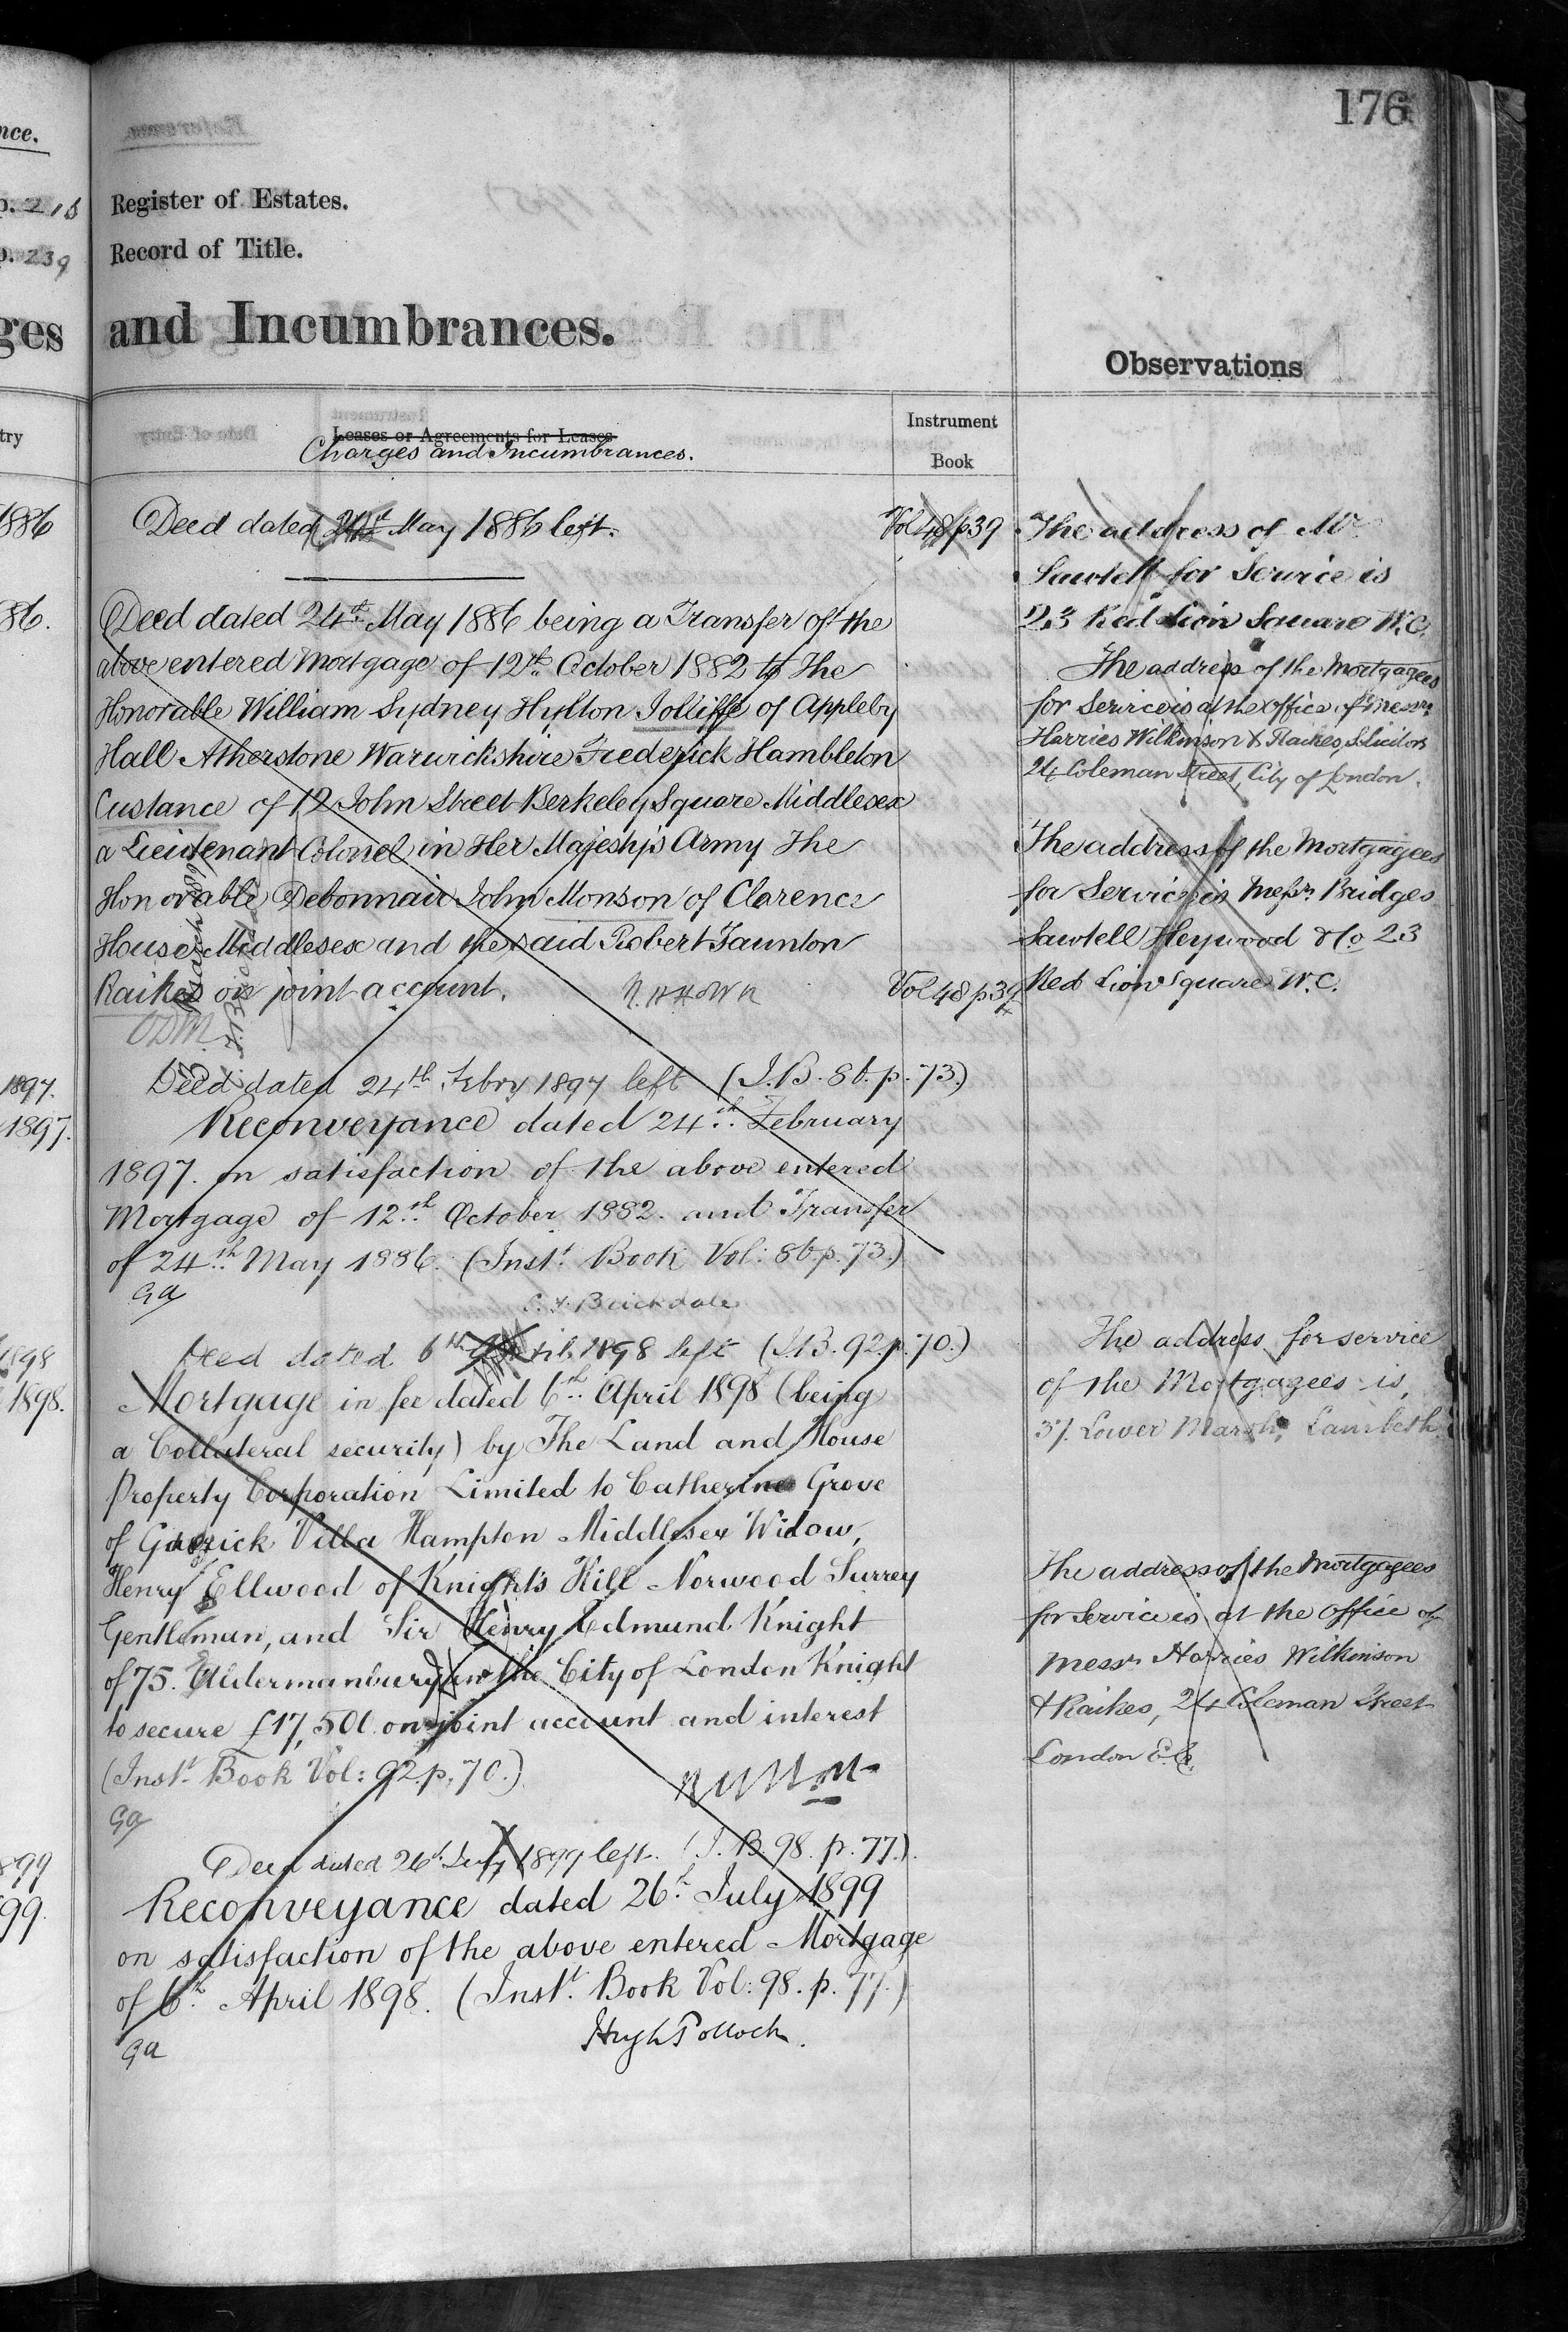 176
Register of Estates.
Record of Title.
and Incumbrances.
Observations
Leases or Agreements for Leases
Charges and Incumbrances.
Instrument
Book
Deed dated 24th May 1886 left.
Vol 48 p39
Deed dated 24th May 1886 being a Transfer of the
above entered Mortgage of 12th October 1882 to The
Honorable William Sydney Hylton Jolliffe of Appleby
Hall Atherstone Warwickshire Frederick Hambleton
Custance of 12 John Street Berkeley Square Middlesex
a Lieutenant Colonel in Her Majesty's Army The
Honorable Debonnair John Monson of Clarence
House Middlesex and the said Robert Taunton
Raikes on joint account.
Vol 48 p39
Deed dated 24th Febry 1897 left (I.B. 86. p. 73.)
Reconveyance dated 24th February
1897. on satisfaction of the above entered
Mortgage of 12th October 1882. and Transfer
of 24th May 1886. (Inst. Book Vol: 86 p. 73.)
Ga
Deed dated 6th April 1898 left (I.B. 92 p. 70.)
Mortgage in fee dated 6th April 1898 (being
a Collateral security) by The Land and House
Property Corporation Limited to Catherine Grove
of Garrick Villa Hampton Middlesex Widow,
Henry Ellwood of Knight's Hill Norwood Surrey
Gentleman, and Sir Henry Edmund Knight
of 75. Aldermanbury in the City of London Knight
to secure £17,500 on joint account and interest
(Inst. Book Vol: 92. p. 70.)
Ga
Deed dated 26th July 1899 left. (I.B. 98. p. 77.)
Reconveyance dated 26th July 1899
on satisfaction of the above entered Mortgage
of 6th April 1898. (Inst. Book Vol: 98. p. 77.)
Hugh Pollock.
Ga
The address of Mr
Sawtell for Service is
23 Red Lion Square W.C.
The address of the Mortgagees
for Service is at the office of Messrs
Harries Wilkinson & Raikes, Solicitors
24 Coleman Street, City of London.
The address of the Mortgagees
for Service is Messrs. Bridges
Sawtell Heywood & Co 23
Red Lion Square W.C.
The address for service
of the Mortgagees is,
37. Lower Marsh, Lambeth
The address of the Mortgagees
for Service is at the office of
Messrs Harries Wilkinson
& Raikes, 24 Coleman Street
London E.C.
nce.
p. 239
ges
try
1886
86.
1897.
1897.
1898
1898.
899
99.